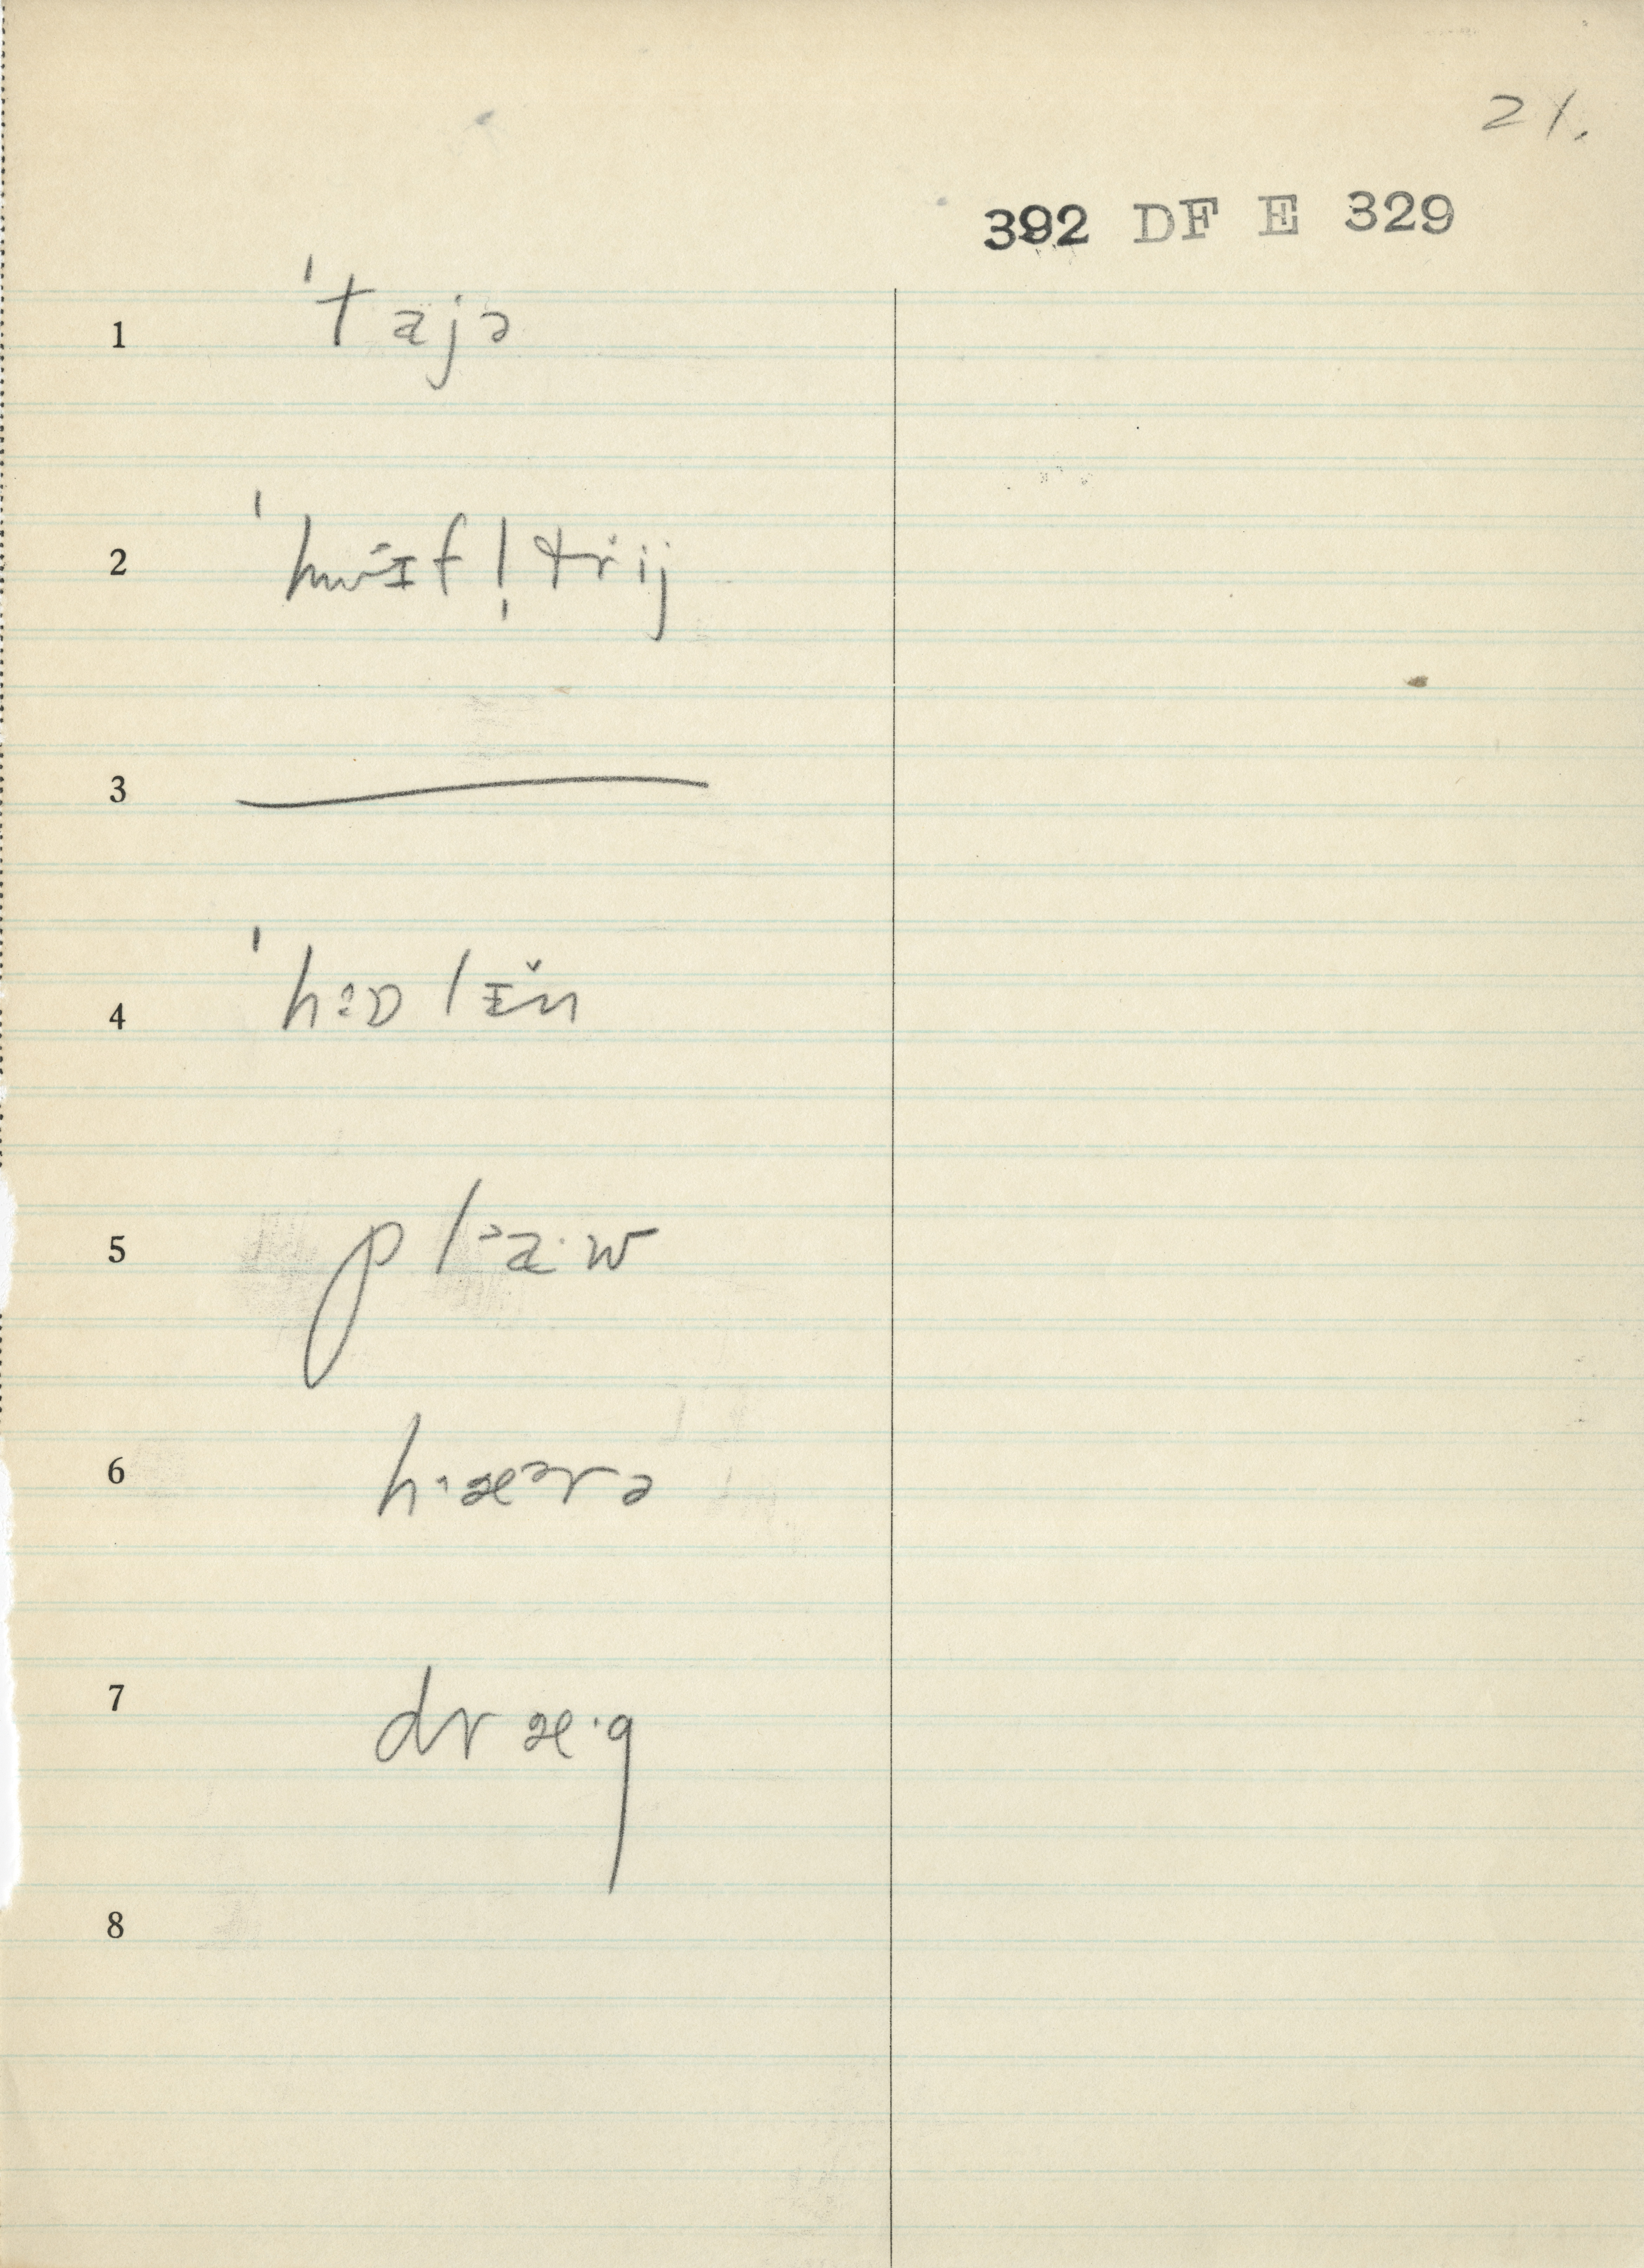 21.
392 DF E 329
1 ˈtajə
2 ˈhwɪfl̩trij
3
4
5 plᵊa·w
6 h·æᵊrə
7 dræ·g
8